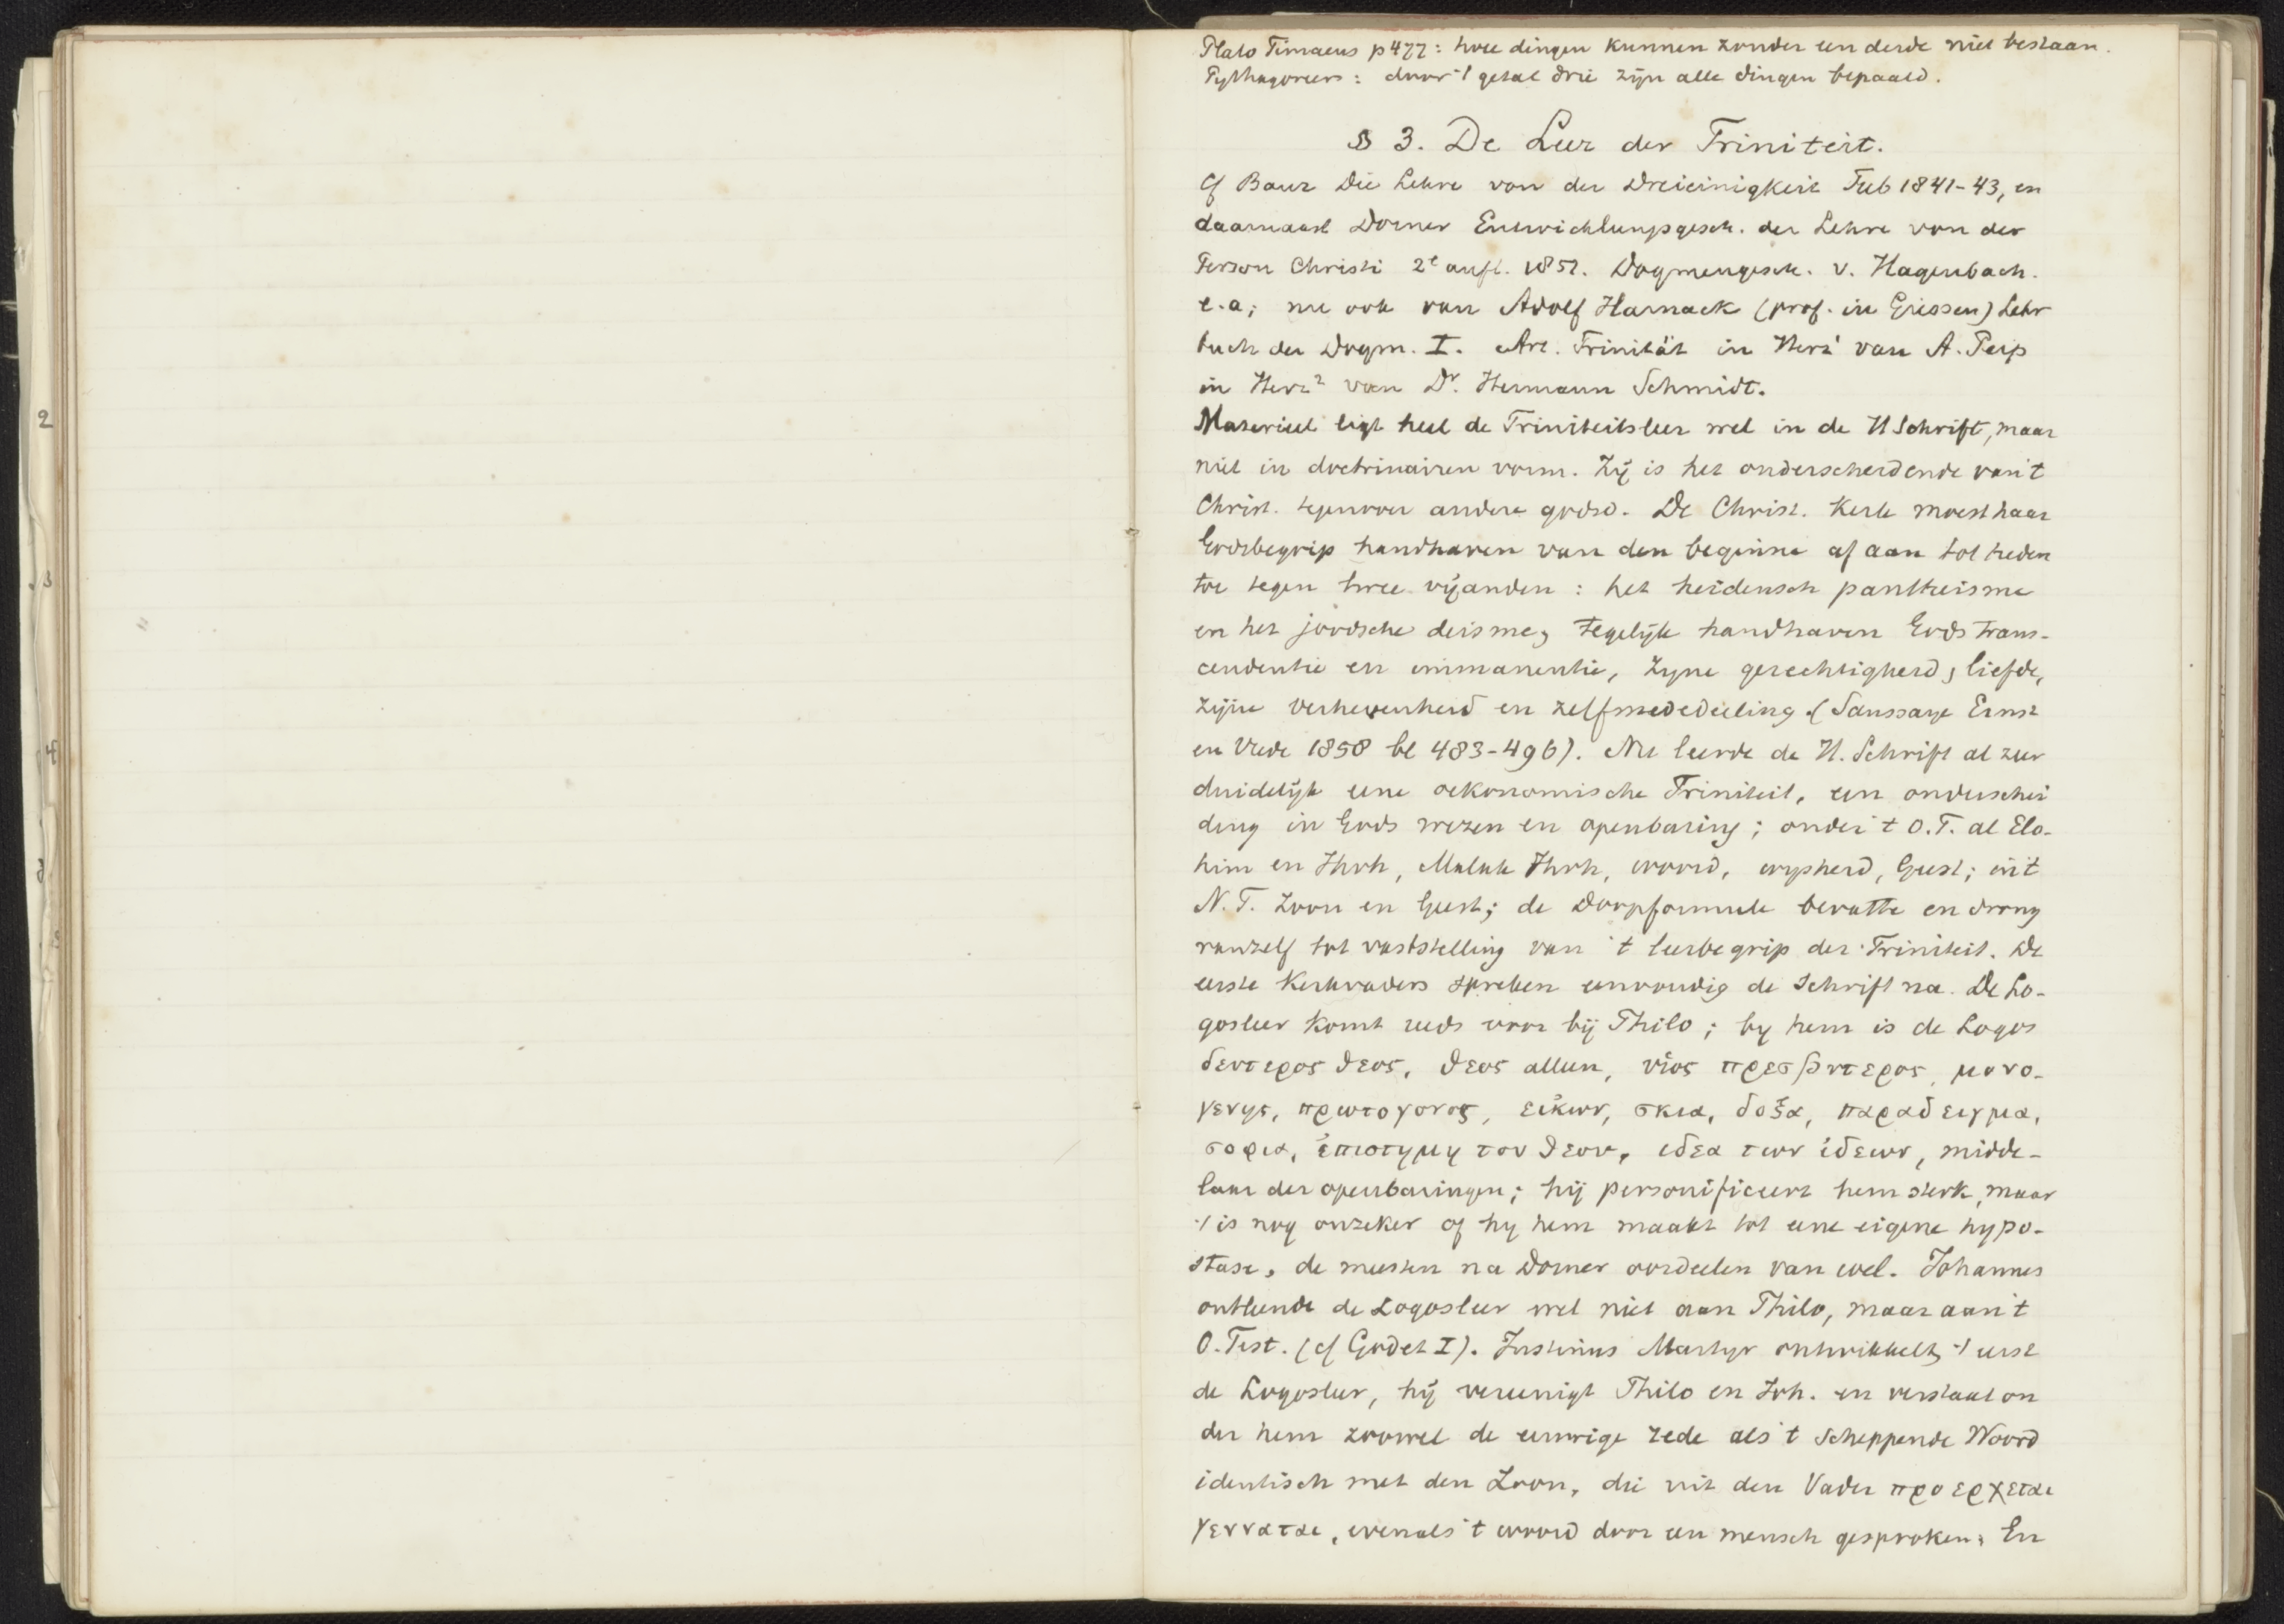 Plato Timaeus p 477: twee dingen kunnen zonder een derde niet bestaan.
Pythagoreers: door 't getal drie zijn alle dingen bepaald.
§ 3. De Leer der Triniteit.
Cf Baur Die Lehre von der Dreieinigkeit Tub 1841-43, en
daarnaast Dorner Entwicklungsgesch. der Lehre von der
Person Christi 2e aufl. 1851. Dogmengesch. v. Hagenbach.
e.a; nu ook van Adolf Harnack (prof. in Giessen) Lehr
buch der Dogm. I. Art. Trinität in Herz1 van A. Peip
in Herz2 van Dr. Hermann Schmidt.
Materieel ligt heel de Triniteitsleer wel in de H Schrift, maar
niet in doctrinairen vorm. Zij is het onderscheidende van 't
Christ. tegenover andere godsd. De Christ. Kerk moest haar
Godsbegrip handhaven van den beginne af aan tot heden
toe tegen twee vijanden: het heidensch pantheisme
en het joodsche deisme, tegelijk handhaven Gods trans-
cendentie en immanentie, zijne gerechtigheid, liefde,
zijne verhevenheid en zelfmededeeling. (Saussaye Ernst
en Vrede 1858 bl 483-496). Nu leerde de H. Schrift al zeer
duidelijk eene oekonomische Triniteit, een onderschei
ding in Gods wezen en openbaring; onder 't O.T. al Elo-
him en Jhvh, Maleak Jhvh, woord, wijsheid, Geest; in 't
N.T. Zoon en Geest; de doopformule bevatte en drong
vanzelf tot vaststelling van 't leerbegrip der Triniteit. De
eerste Kerkvaders spreken eenvoudig de Schrift na. De Lo-
gosleer komt reeds voor bij Philo; by hem is de Logos
δευτερος θεος, θεος alleen, υἱος πρεσβυτερος, μονο-
γενης, πρωτογονος, εἰκων, σκια, δοξα, παραδειγμα,
σοφια, ἐπιστημη του θεου, ιδεα των ἰδεων, midde-
laar der openbaringen; hij personificeert hem sterk, maar
't is nog onzeker of hij hem maakt tot eene eigene hypo-
stase, de meesten na Dorner oordeelen van wel. Johannes
ontleende de Logosleer wel niet aan Philo, maar aan 't
O. Test. (cf Godet I). Justinus Martyr ontwikkelt 't eerst
de Logosleer, hij vereenigt Philo en Joh. en verstaat on
der hem zoowel de eeuwige rede als 't scheppende Woord
identisch met den Zoon, die uit den Vader προερχεται
γενναται, evenals 't woord door een mensch gesproken. En
2
3
4